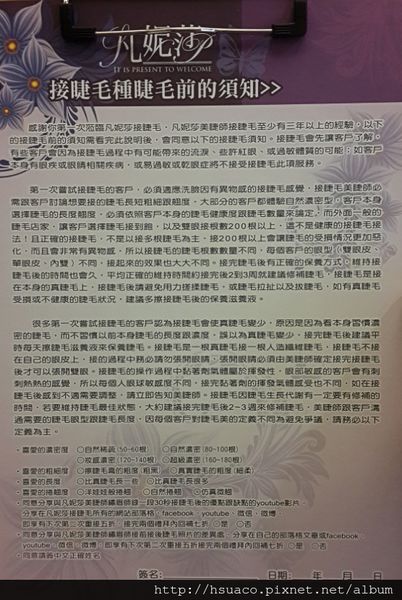 凡妮莎
IT IS PRESENT TO WELCOME
接睫毛種睫毛前的須知>>
感謝你第一次蒞臨凡妮莎接睫毛，凡妮莎美睫師接睫毛至少有三年以上的經驗，以下
的接睫毛前的須知需看完此說明後，會同意以下的接睫毛須知。接睫毛會先讓客戶了解，
有些客戶會因為接睫毛過程中有可能帶來的流淚、些許紅眼、或過敏體質的可能；如客戶
本身有眼疾或眼睛相關疾病，或易過敏或乾眼症將不接受接睫毛此項服務。
第一次嘗試接睫毛的客戶，必須適應洗臉因有異物感的接睫毛感覺，接睫毛美睫師必
需跟客戶討論想要接的睫毛長短粗細跟翹度，大部分的客戶都體驗自然濃密型，客戶本身
選擇睫毛的長度翹度，必須依照客戶本身的睫毛健康度跟睫毛數量來論定，而外面一般的
睫毛店家，讓客戶選擇睫毛接到飽，以及雙眼接根數200根以上，這不是健康的接睫毛接
法！且正確的接睫毛，不是以接多根睫毛為主，接200根以上會讓睫毛的受損情況更加惡
化，而且會非常有異物感，所以接睫毛的睫毛根數數量不同，每個客戶的眼型（雙眼皮、
單眼皮、內雙）不同，接起來的效果也大大不同。接完睫毛後有正確的保養方式，維持接
睫毛後的時間也會久，平均正確的維持時間約接完後2到3周就建議修補睫毛。接睫毛是接
在本身的真睫毛上，接睫毛後請避免用力搓揉睫毛，或睫毛拉扯以及拔睫毛，如有真睫毛
受損或不健康的睫毛狀況，建議多擦接睫毛後的保養滋養液。
很多第一次嘗試接睫毛的客戶認為接睫毛會使真睫毛變少，原因是因為看本身習慣濃
密的睫毛，而不習慣以前本身睫毛的長度跟濃度，誤以為真睫毛變少，接完睫毛後建議平
時每天擦睫毛滋養液來保養睫毛。接睫毛是一根真睫毛接一根人造纖維睫毛，接睫毛不接
在自己的眼皮上，接的過程中務必請勿張開眼睛，張開眼睛必須由美睫師確定接完接睫毛
後才可以張開雙眼。接睫毛的操作過程中黏著劑氣體屬於揮發性，眼部敏感的客戶會有刺
刺熱熱的感覺，所以每個人眼球敏感度不同，接完黏著劑的揮發氣體感受也不同，如在接
睫毛後感到不適需要調整，請立即告知美睫師。接睫毛因睫毛生長代謝有一定要有修補的
時間，若要維持睫毛最佳狀態，大約建議接完睫毛後2-3週來修補睫毛，美睫師跟客戶溝
通需要的睫毛眼型跟睫毛長度，因每個客戶對睫毛美的定義不同為避免爭議，請務必以下
定義為主。
・喜愛的濃密度 ○自然稀疏(50-60根) ○自然濃密(80-100根)
○妝感濃密(120-140根) ○超級濃密(160-180根)
・喜愛的粗細度 ○擦睫毛膏的粗度(粗黑) ○真實睫毛的粗度(細柔)
・喜愛的長度 ○比真睫毛長一些 ○比真睫毛長很多
・喜愛的捲翹度 ○洋娃娃般捲翹 ○自然捲翹 ○仿真微翹
・同意分享與凡妮莎美睫師繡眉師錄一段30秒接睫毛後的優點跟缺點的youtube影片，
分享在凡妮莎接睫毛所有的網站部落格、facebook、youtube、微信、微博
即享有下次第二次重接五折，接完兩個禮拜內回補七折 ○是 ○否
・同意分享與凡妮莎美睫師繡眉師接前後接睫毛照片的差異處，分享在自己的部落格文章或facebook、
youtube、微信、微博，即享有下次第二次重接五折接完兩個禮拜內回補七折 ○是 ○否
・同意請簽中文正確姓名
簽名： 日期： 年 月 日
http://hsuaco.pixnet.net/album